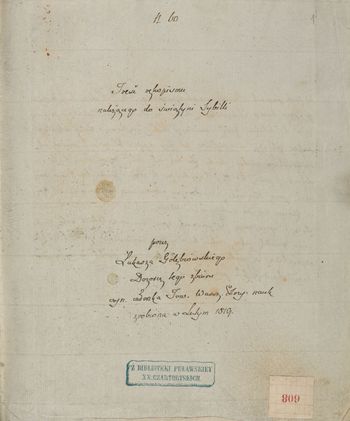 1
Treść rękopismu
należącego do świątyni Sybilli
przez
Łukasza Gołębiowskiego
Dozorcę tego zbioru
czyn. członka Tow. Warsz. Przyj. nauk
zrobiona w Lutym 1819.
Z BIBLIOTEKI PUŁAWSKIEY
XX. CZARTORYSKICH.
809